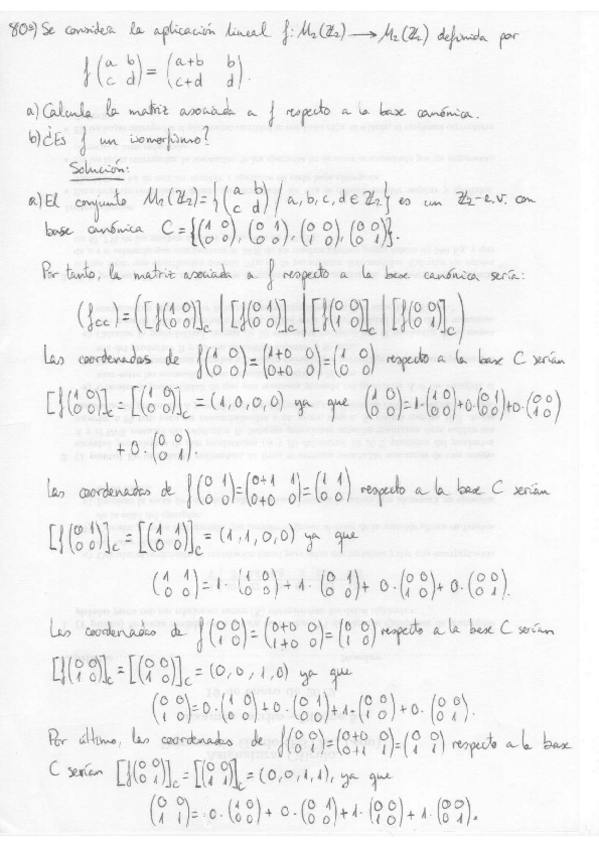 80º) Se considera la aplicación lineal f: M₂(ℤ₂) → M₂(ℤ₂) definida por
f (a b; c d) = (a+b b; c+d d).
a) Calcula la matriz asociada a f respecto a la base canónica.
b) ¿Es f un isomorfismo?
Solución:
a) El conjunto M₂(ℤ₂) = {(a b; c d) / a, b, c, d ∈ ℤ₂} es un ℤ₂-e.v. con
base canónica C = {(1 0; 0 0), (0 1; 0 0), (0 0; 1 0), (0 0; 0 1)}.
Por tanto, la matriz asociada a f respecto a la base canónica sería:
(f_CC) = ([f(1 0; 0 0)]_C | [f(0 1; 0 0)]_C | [f(0 0; 1 0)]_C | [f(0 0; 0 1)]_C)
Las coordenadas de f(1 0; 0 0) = (1+0 0; 0+0 0) = (1 0; 0 0) respecto a la base C serían
[f(1 0; 0 0)]_C = [(1 0; 0 0)]_C = (1, 0, 0, 0) ya que (1 0; 0 0) = 1·(1 0; 0 0) + 0·(0 1; 0 0) + 0·(0 0; 1 0)
+ 0·(0 0; 0 1).
Las coordenadas de f(0 1; 0 0) = (0+1 1; 0+0 0) = (1 1; 0 0) respecto a la base C serían
[f(0 1; 0 0)]_C = [(1 1; 0 0)]_C = (1, 1, 0, 0) ya que
(1 1; 0 0) = 1·(1 0; 0 0) + 1·(0 1; 0 0) + 0·(0 0; 1 0) + 0·(0 0; 0 1).
Las coordenadas de f(0 0; 1 0) = (0+0 0; 1+0 0) = (0 0; 1 0) respecto a la base C serían
[f(0 0; 1 0)]_C = [(0 0; 1 0)]_C = (0, 0, 1, 0) ya que
(0 0; 1 0) = 0·(1 0; 0 0) + 0·(0 1; 0 0) + 1·(0 0; 1 0) + 0·(0 0; 0 1).
Por último, las coordenadas de f(0 0; 0 1) = (0+0 0; 0+1 1) = (0 0; 1 1) respecto a la base
C serían [f(0 0; 0 1)]_C = [(0 0; 1 1)]_C = (0, 0, 1, 1), ya que
(0 0; 1 1) = 0·(1 0; 0 0) + 0·(0 1; 0 0) + 1·(0 0; 1 0) + 1·(0 0; 0 1).